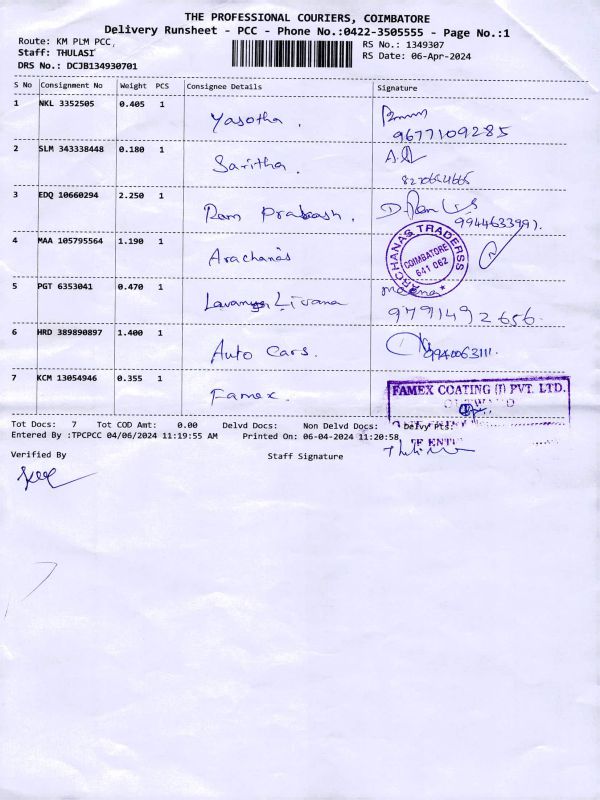 THE PROFESSIONAL COURIERS, COIMBATORE
Delivery Runsheet - PCC - Phone No.:0422-3505555 - Page No.:1
Route: KM PLM PCC,
RS No.: 1349307
Staff: THULASI
RS Date: 06-Apr-2024
DRS No.: DCJB134930701
S No Consignment No Weight PCS Consignee Details Signature
1 NKL 3352505 0.405 1 Yasotha .
9677109285
2 SLM 343338448 0.180 1 Saritha .
3 EDQ 10660294 2.250 1 Ram Prakash .
9944633991.
4 MAA 105795564 1.190 1 Arachanas
ARCHANAS TRADERSS
COIMBATORE
641 062
5 PGT 6353041 0.470 1 Lavanya Livana
meena
9791492656.
6 HRD 389890897 1.400 1 Auto Cars.
9940063111.
7 KCM 13054946 0.355 1 Famex.
FAMEX COATING (I) PVT. LTD.
Tot Docs: 7 Tot COD Amt: 0.00 Delvd Docs: Non Delvd Docs: Delvy Pts:
Entered By :TPCPCC 04/06/2024 11:19:55 AM Printed On: 06-04-2024 11:20:58
Verified By
Staff Signature